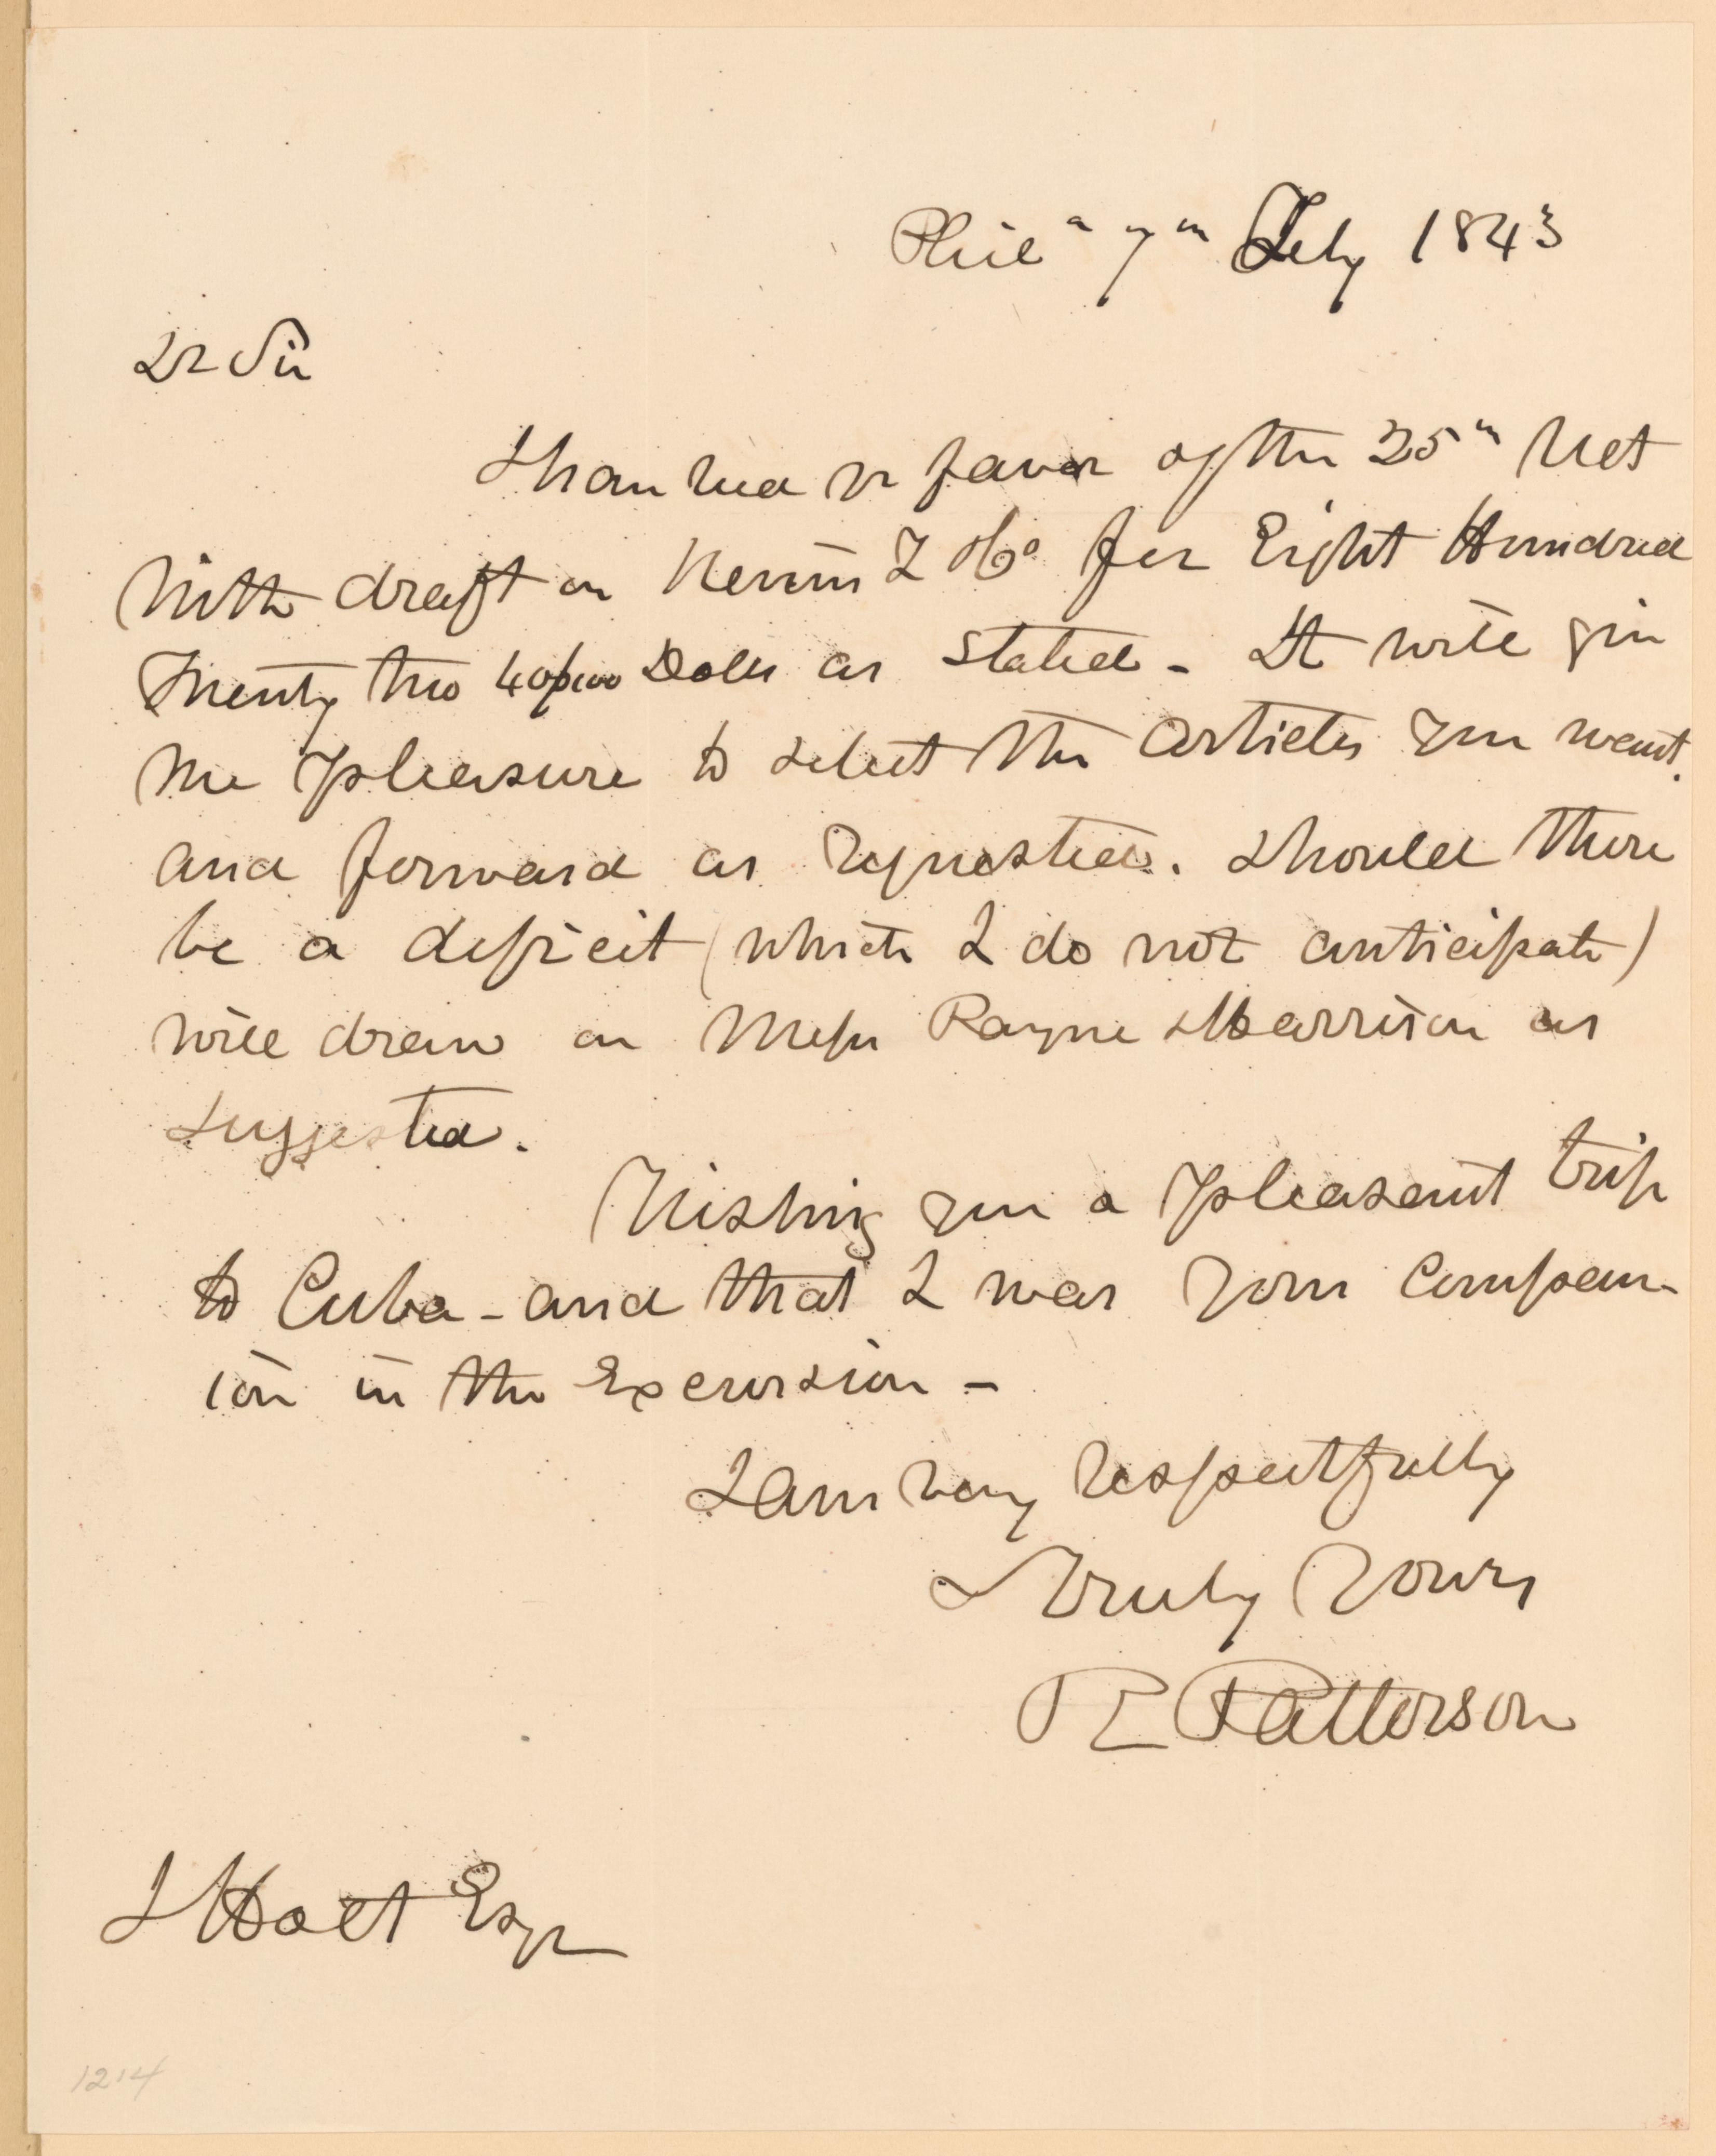 Phila 7th Feby 1843
Dr Sir
I have recd yr favor of the 25th Ult
With draft on & Co for Eight Hundred
Twenty two 40/100 Dolls as stated - It will give
me pleasure to select the articles you want.
and forward as requested. Should there
be a deficit (which I do not anticipate)
will draw on Messrs Payne & Harrison as
suggested.
Wishing you a pleasant trip
to Cuba - and that I was your compan-
ion in the Excursion -
I am very respectfully
& Truly Yours
R Patterson
J Holt Esqr
1214